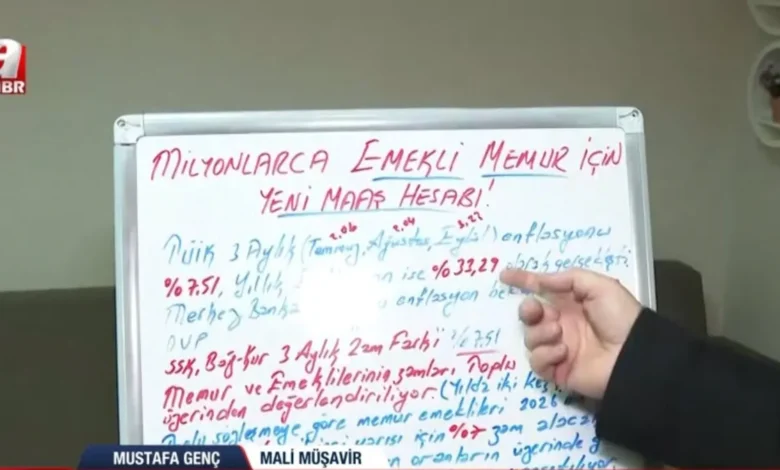 a
HBR
MİLYONLARCA EMEKLİ MEMUR İÇİN
YENİ MAAŞ HESABI!
2.06 2.04 3.23
TÜİK 3 Aylık (Temmuz, Ağustos, Eylül) enflasyonu
%7.51, Yıllık ise %33,29 olarak gerçekleşti.
Merkez Banka enflasyon
OVP
SSK, Bağ-Kur 3 Aylık Zam Farkı %7.51
Memur ve Emeklilerinin zamları Toplu
üzerinden değerlendiriliyor. (Yılda iki kez
sözleşmeye göre memur emeklileri 2026
yarısı için %7 zam alacak
oranların üzerinde
MUSTAFA GENÇ MALİ MÜŞAVİR